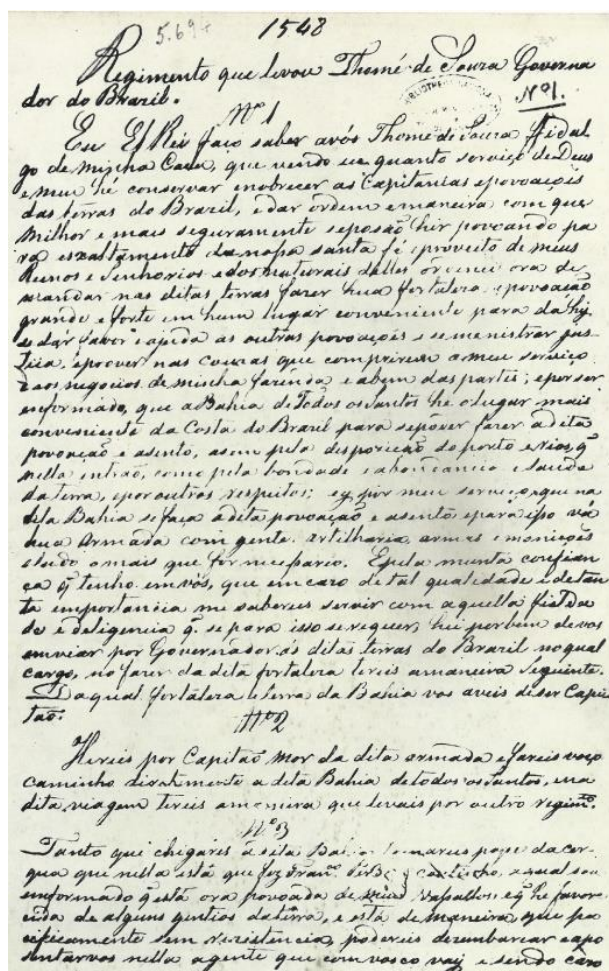 5.694
1548
Regimento que levou Thomé de Souza Governa
dor do Brazil.
Nº 1.
Nº 1
Eu El Rei faço saber avós Thome de Souza Fidal
go de minha Caza, que vendo eu quanto serviço de Deus
e meu hé conservar enobrecer as Capitanias epovoaçois
das terras do Brazil, edar ordem emaneira com que
milhor e mais seguramente seposão hir povoando pa
ra exaltamento da nosa santa fé eproveito de meus
Reinos e Senhorios edos naturais delles ordenei ora de
mandar nas ditas terras fazer hua fortaleza epovoação
grande e forte em hum lugar conveniente para dahy
se dar favor e ajuda as outras povoaçois e se menistrar jus
tiça, eprover nas couzas que comprirem omeu serviço
e aos negocios de minha fazenda e abem das partes; epor ser
enformado, que a Bahia de Todos os Santos he o lugar mais
conveniente da Costa do Brazil para sepoder fazer adita
povoação e asento, asim pela desposição do porto e rios, q̃
nella entrão, como pela bondade eabondancia e saude
da terra, epor outros respeitos; ey por meu serviço que na
dita Bahia se faça adita povoação e asento, epara ipso vá
hua Armada com gente artilharia, armas e monições
etudo o mais que for necesario. Epela muita confian
ça q̃ tenho em vós, que em cazo de tal qualidade e de tan
ta importancia me sabereis servir com aquella fielda
de e deligencia q̃ se para isso se requer, hei por bem de vos
enviar por Governador ás ditas terras do Brazil no qual
cargo, no fazer da dita fortaleza tereis a maneira seguinte.
Da qual fortaleza e terra da Bahia vos aveis de ser Capi
tão.
Nº 2
Hireis por Capitão mor da dita armada e fareis voso
caminho diretamente a dita Bahia de todos os Santos, e na
dita viagem tereis a maneira que levais por outro regim.to
Nº 3
Tanto que chegares á dita Bahia tomareis pose da cer
qua que nella está que fez Fran.co Coutinho, a qual sou
enformado q̃ está ora povoada de meus vasallos e q̃ he favore
cida de alguns gentios da terra, e está de maneira, que pa
cificamente sem rezistencia, podereis dezembarcar e apo
sentarvos nella a gente que com vosco vay e sendo cazo